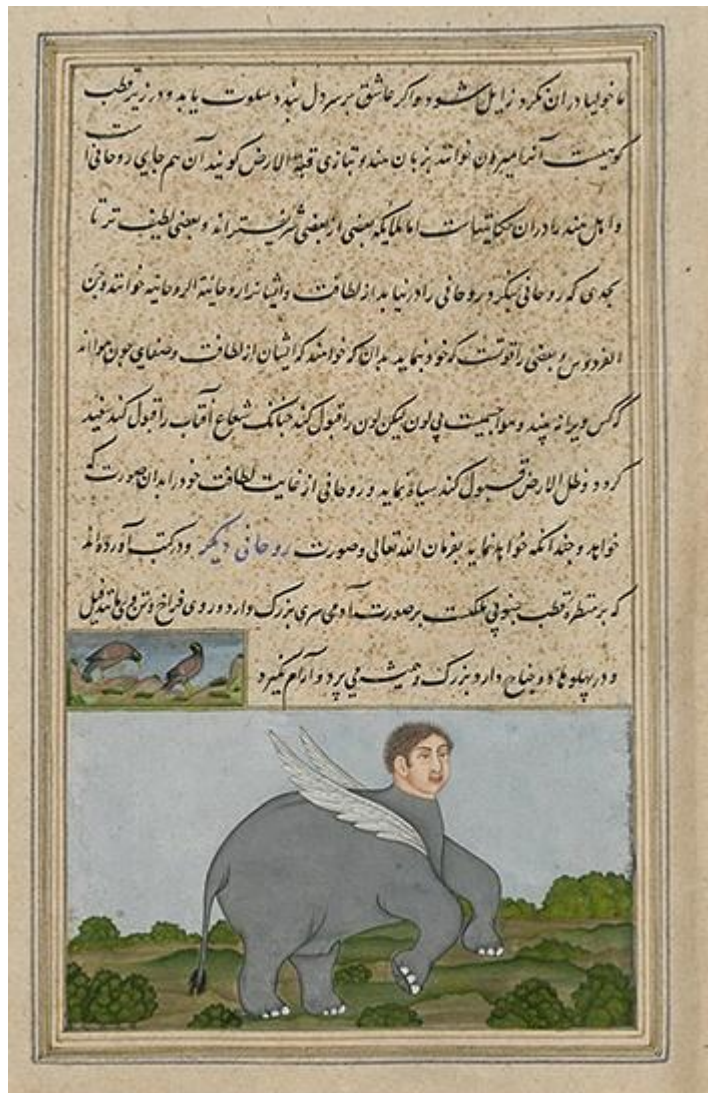 ماخولیا در ان نکرد زایل شود و اگر عاشق بر سر دل بندد سلوت یابد و در زیر قطب
کوهیست آنرا میرو خوانند بزبان هند و بتازی قبة الارض کویند آن هم جای روحانی است
و اهل هند را در ان حکایتهاست اما ملایکه بعضی از بعضی شریفتراند و بعضی لطیف تر تا
بحدی که روحانی بنکرد روحانی را در نیابد از لطافت و ایشانرا روحانیة الروحانیه خوانند و جن
الفردوس و بعضی را قوتست که خود بنماید بدان که خواهند که ایشان از لطافت و صفای چون هوااند
که کس ویرا نه بیند و هوا جسمیست بی لون لیکن لون را قبول کند چنانک شعاع آفتاب را قبول کند سفید
کردد و ظل الارض قبول کند سیاه نماید و روحانی از غایت لطافت خود را بدان صورت که
خواهد و چندانکه خواهد نماید بفرمان الله تعالی وصورت روحانی دیگر و در کتب آورده اند
که بر منطره قطب جنوبی ملکیست بر صورت آدمی سری بزرک دارد و روی فراخ و تن وی مانند فیل
و در پهلوها دو جناح دارد بزرک و همیشه می پرد و آرام نکیرد